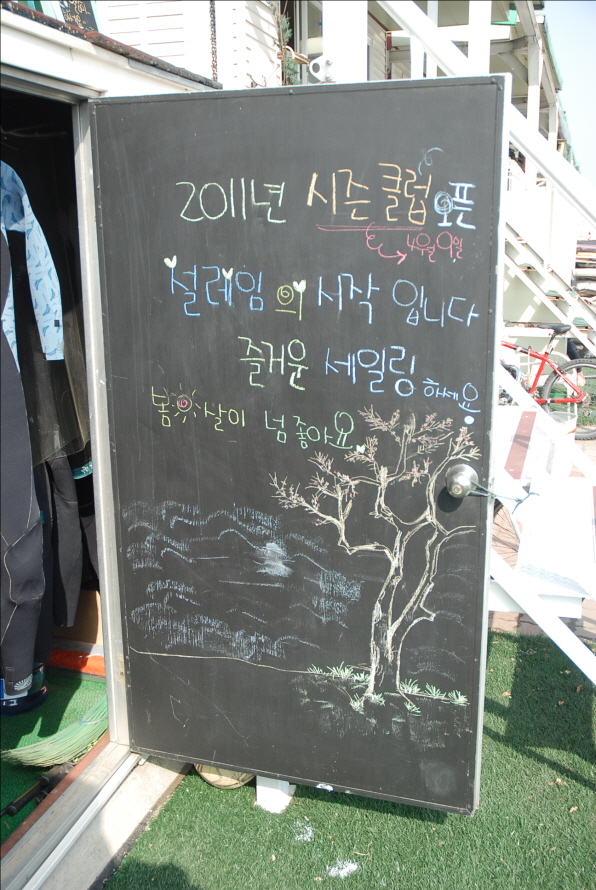 2011년 시즌 클럽 오픈
4월 9일
설레임 의 시작 입니다
즐거운 세일링 하세요
봄 살이 넘 좋아요